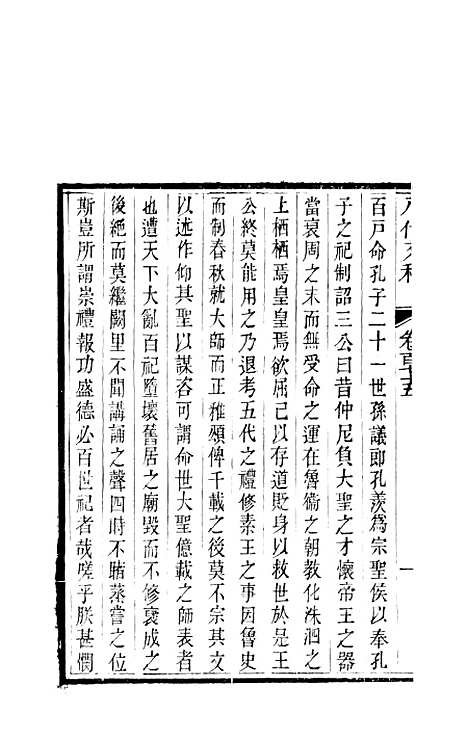 八代文粹 卷百十五 一
百戸命孔子二十一世孫議郎孔羨爲宗聖侯以奉孔
子之祀制詔三公曰昔仲尼負大聖之才懷帝王之器
當衰周之末而無受命之運在魯衞之朝教化洙泗之
上栖栖焉皇皇焉欲屈己以存道貶身以救世於是王
公終莫能用之乃退考五代之禮修素王之事因魯史
而制春秋就大師而正雅頌俾千載之後莫不宗其文
以述作仰其聖以謀咨可謂命世大聖億載之師表者
也遭天下大亂百祀墮壞舊居之廟毀而不修襃成之
後絕而莫繼闕里不聞講誦之聲四時不睹蒸嘗之位
斯豈所謂崇禮報功盛德必百世祀者哉嗟乎朕甚憫